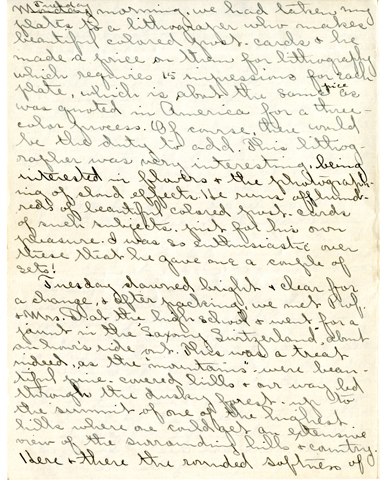 Tuesday
Monday morning we had taken my
plates to a lithographer who makes
beautiful colored post-cards & he
made a price on them for lithography
which requires 15 impressions for each
plate, which is about the same price as
was quoted in America for a three-
color process. Of course, there would
be the duty to add. This lithog-
rapher was very interesting, being
interested in flowers & the photograph-
ing of cloud effects. He runs off hund-
reds of beautiful colored post-cards
of such subjects just for his own
pleasure. I was so enthusiastic over
these that he gave me a couple of
sets!
Tuesday dawned bright & clear for
a change, & after packing we met Prof.
& Mrs. at the high school & went for a
jaunt in the "Saxony Switzerland" about
an hour's ride out. This was a treat
indeed, as the "mountains" were beau-
tiful pine-covered hills & our way led
through the dusky forest up to
the summit of one of the highest
hills where one could get an extensive
view of the surrounding hills & country.
Here & there the rounded softness of